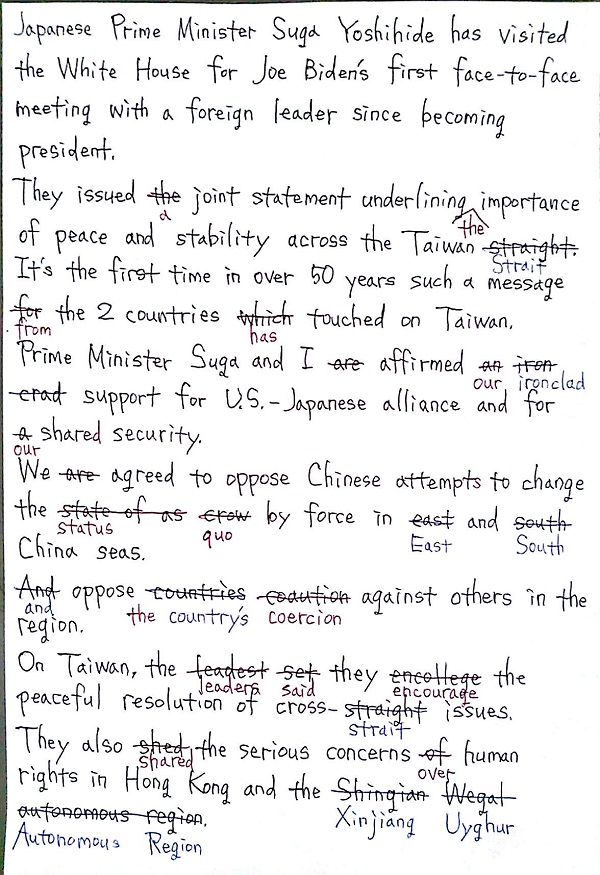 Japanese Prime Minister Suga Yoshihide has visited
the White House for Joe Biden's first face-to-face
meeting with a foreign leader since becoming
president.
They issued the joint statement underlining importance
a the
of peace and stability across the Taiwan straight.
Strait
It's the first time in over 50 years such a message
for the 2 countries which touched on Taiwan.
from has
Prime Minister Suga and I are affirmed an iron
our ironclad
crad support for U.S.-Japanese alliance and for
a shared security.
our
We are agreed to oppose Chinese attempts to change
the state of as crow by force in east and south
status quo East South
China seas.
And oppose countries coaution against others in the
and the country's coercion
region.
On Taiwan, the leadest set they encollege the
leaders said encourage
peaceful resolution of cross-straight issues.
strait
They also shed the serious concerns of human
shared over
rights in Hong Kong and the Shingian Wegal
Xinjiang Uyghur
autonomous region.
Autonomous Region